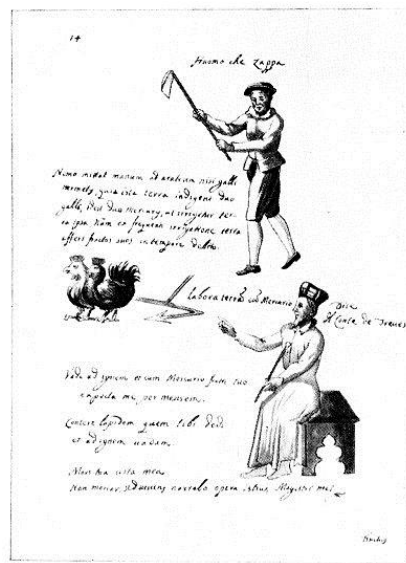 14
Huomo che Zappa
Nemo mittat manum ad aratrum nisi galli
quia ista terra indigena duo
galli, id est duo mercurij, ut irrigetur ter-
ra ipsa nam ex frequenti irrigatione terra
affert fructus suos in tempore debito.
Labora terram cum Mercurio
Dice
il Conte de
Vado ad ignem et cum Mercurio fratre suo
expecta me per mensem.
Contere lapidem quem tibi dedi
et ad ignem vadam.
Mors tua vita mea
Non morior, sed vivens narrabo opera istius Magistri mei